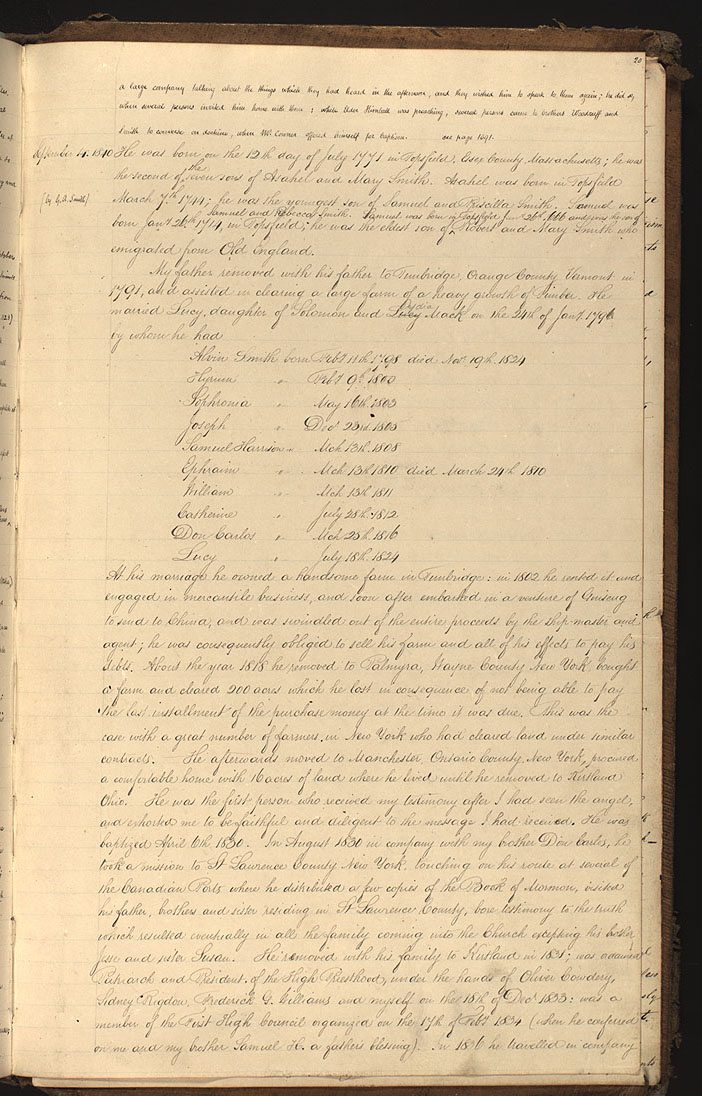 20
a large company talking about the things which they had heard in the afternoon, and they wished him to speak to them again; he did so,
when several persons invited him home with them: while Elder Kimball was preaching, several persons came to brothers Woodruff and
Smith to converse on doctrine, when Mr Connor offered himself for baptism. see page 1091.
September 4. 1840 He was born on the 12th day of July 1771 in Topsfield, Essex County, Massachusetts; he was
the second of the seven sons of Asahel and Mary Smith. Asahel was born in Topsfield
(by G. A. Smith) March 7th 1744; he was the youngest son of Samuel and Priscilla Smith. Samuel was
Samuel and Rebecca Smith. Samuel was born in Topsfield Jany 26th 1666 and was the son of
born Jany 26th 1714, in Topsfield; he was the eldest son of Robert and Mary Smith who
emigrated from Old England.
My father removed with his father to Tunbridge, Orange County, Vermont in
1791, and assisted in clearing a large farm of a heavy growth of Timber. He
Lydia
married Lucy, daughter of Solomon and Lucy Mack on the 24th of Jany 1796
by whom he had
Alvin Smith born Feby 11th 1798 died Nov. 19th 1824
Hyrum " Feby 9th 1800
Sophronia " May 16th 1803
Joseph " Decr 23rd 1805
Samuel Harrison " Mch 13th 1808
Ephraim " Mch 13th 1810 died March 24th 1810
William " Mch 13th 1811
Catherine " July 28th 1812
Don Carlos " Mch 25th 1816
Lucy " July 18th 1824
At his marriage he owned a handsome farm in Tunbridge: in 1802 he rented it and
engaged in mercantile business, and soon after embarked in a venture of Ginseng
to send to China, and was swindled out of the entire proceeds by the ship-master and
agent; he was consequently obliged to sell his farm and all of his effects to pay his
debts. About the year 1818 he removed to Palmyra, Wayne County New York, bought
a farm and cleared 200 acres which he lost in consequence of not being able to pay
the last installment of the purchase money at the time it was due. This was the
case with a great number of farmers in New York who had cleared land under similar
contracts. He afterwards moved to Manchester, Ontario County, New York, procured
a comfortable home with 16 acres of land where he lived until he removed to Kirtland
Ohio. He was the first person who received my testimony after I had seen the angel,
and exhorted me to be faithful and diligent to the message I had received. He was
baptized April 6th 1830. In August 1830 in company with my brother Don Carlos, he
took a mission to St Lawrence County New York, touching on his route at several of
the Canadian Ports where he distributed a few copies of the Book of Mormon, visited
his father, brothers and sister residing in St Lawrence County, bore testimony to the truth
which resulted eventually in all the family coming into the Church excepting his brother
Jesse and sister Susan. He removed with his family to Kirtland in 1831; was ordained
Patriarch and President of the High Priesthood, under the hands of Oliver Cowdery,
Sidney Rigdon, Frederick G. Williams and myself on the 18th of Decr 1833: was a
member of the First High Council organized on the 17th of Feby 1834 (when he conferred
on me and my brother Samuel H. a father's blessing). In 1836 he travelled in company